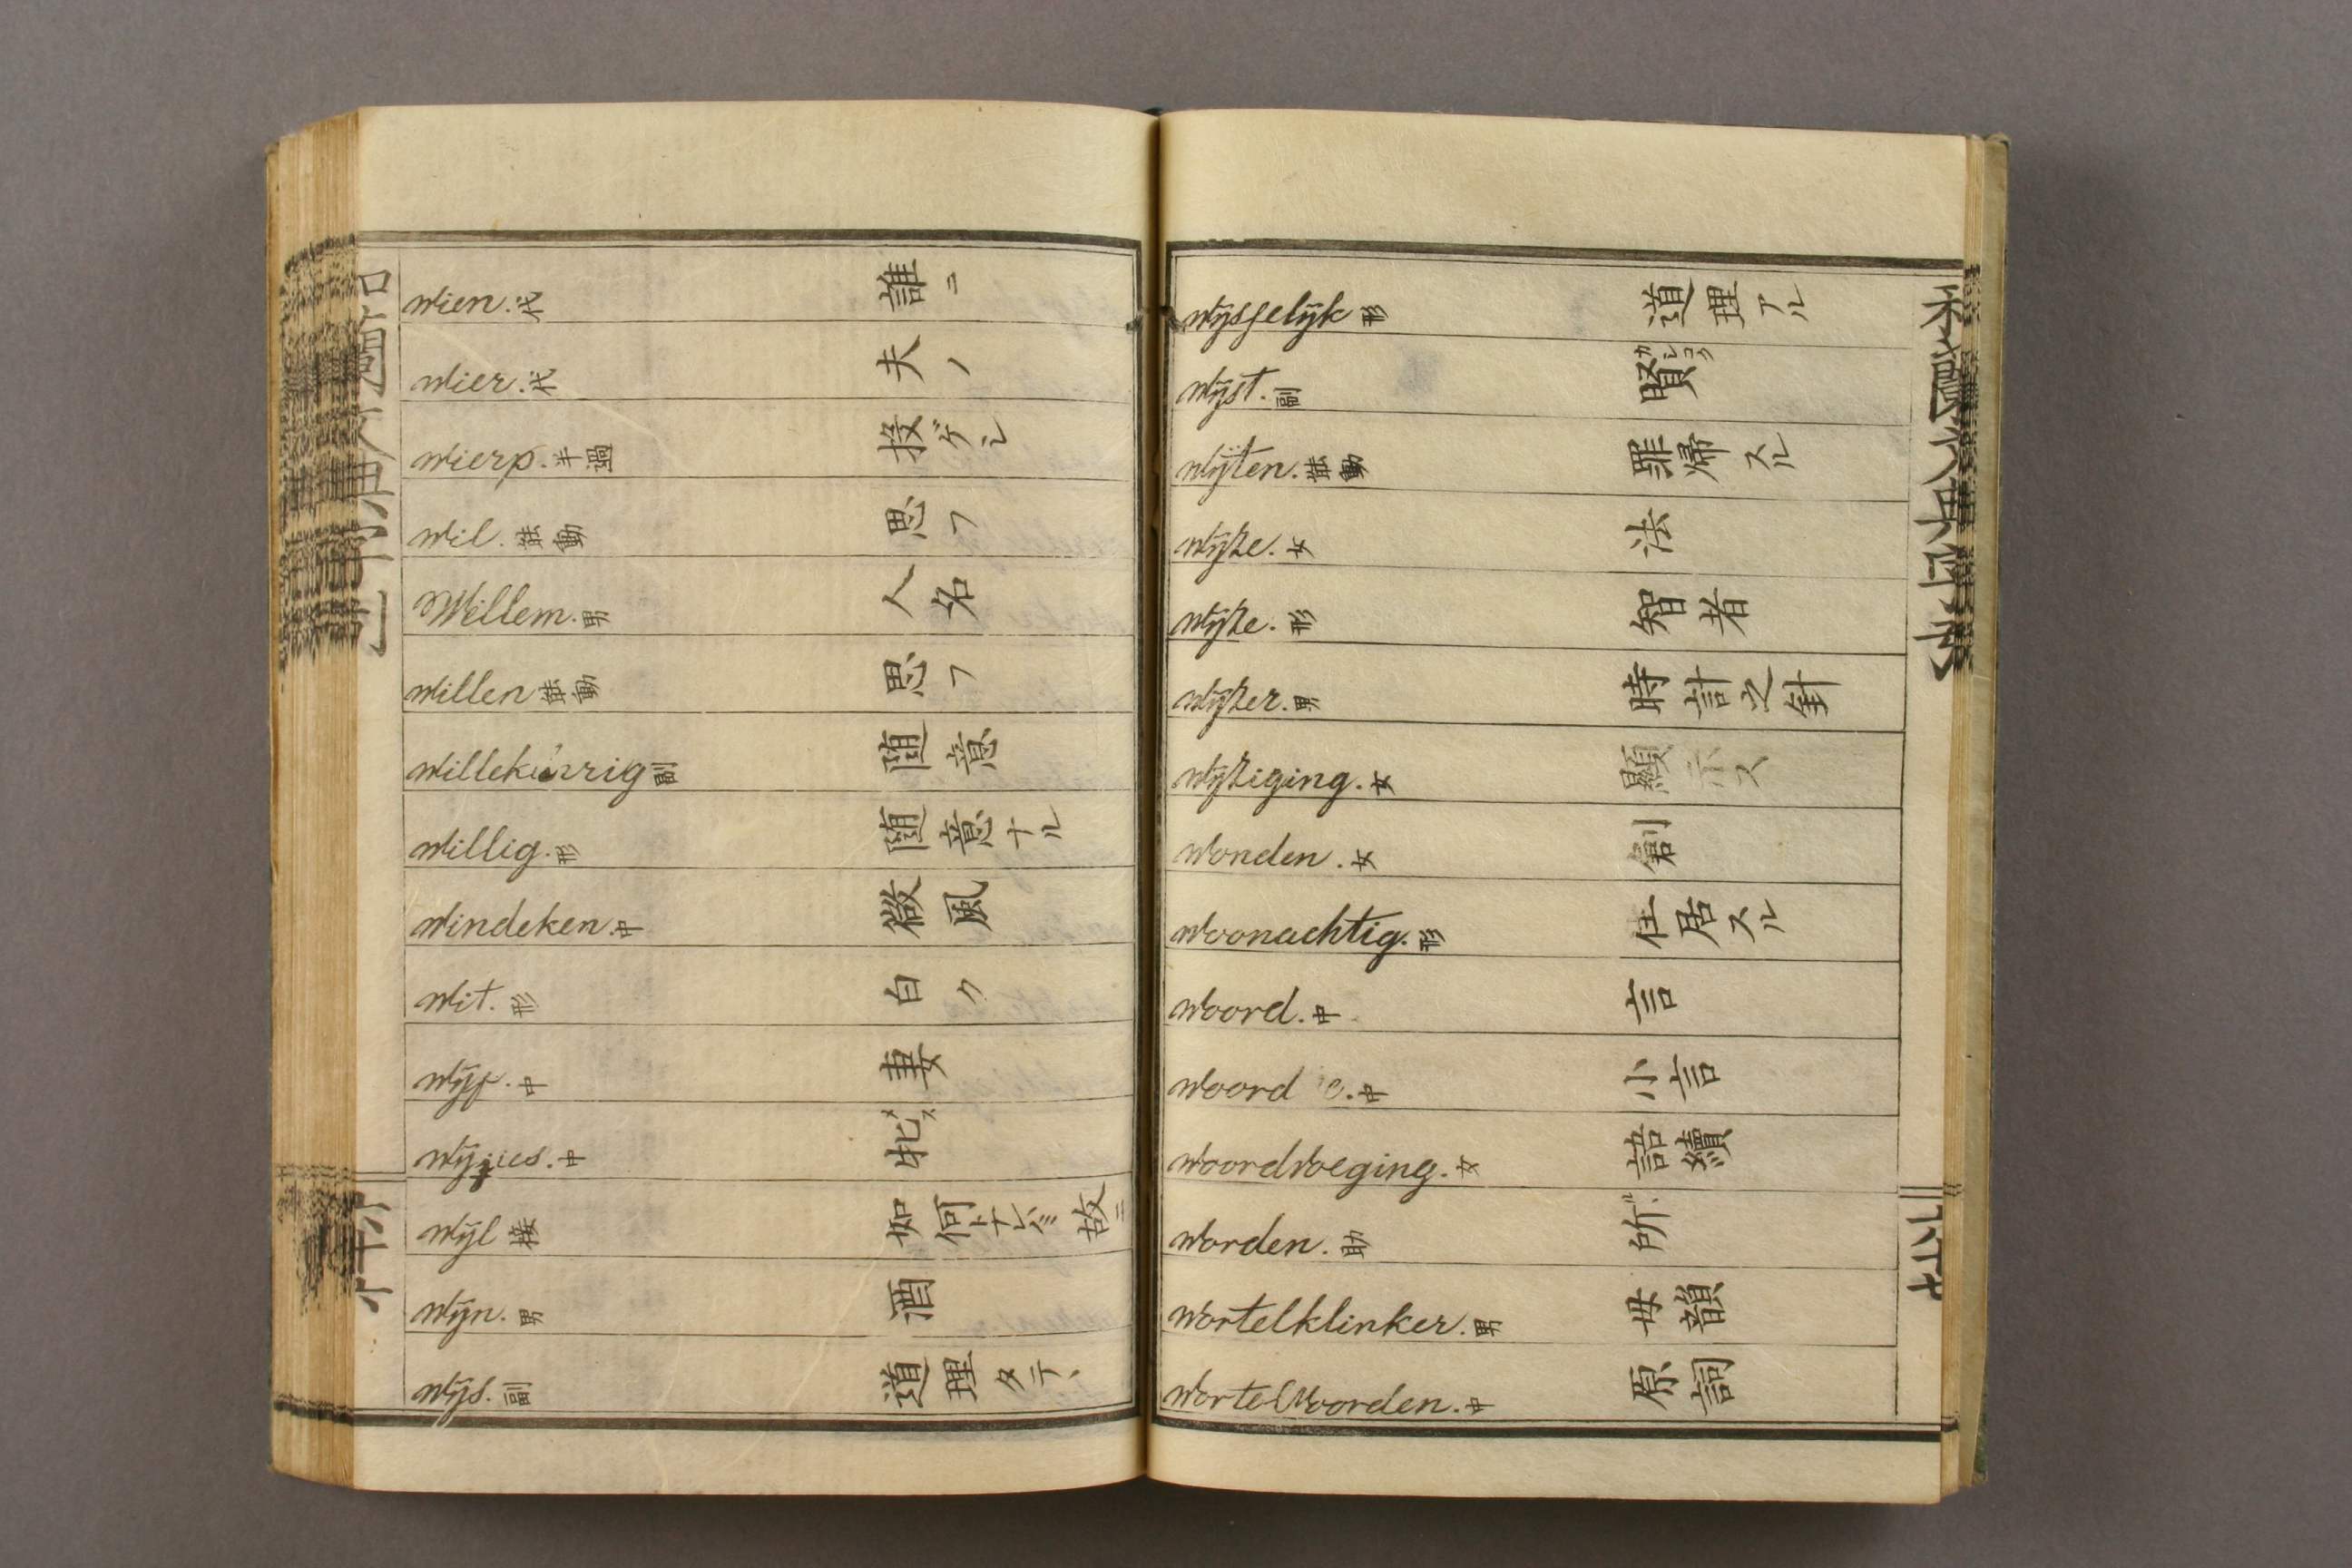 wien. 代 誰ニ
wier. 代 夫ノ
wierp. 半過 投ゲシ
wil. 動 思フ
Willem. 男 人名
willen 動 思フ
willekeurrig 副 随意
willig. 形 随意ナル
windeken. 中 微風
wit. 形 白ク
wÿf. 中 妻
中 牝メス
wÿl 接 如何トナレバ故ニ
wÿn. 男 酒
wÿs. 副 道理タテ、
wÿsselÿk 形 道理アル
wÿst. 副 賢カシコク
wÿten. 動 罪帰スル
wÿze. 女 法
wÿze. 形 智者
wÿzer. 男 時計之針
wÿziging. 女 顯示ス
wonden. 女 創
woonachtig. 形 住居スル
woord. 中 言
woord e. 中 小言
woordvoeging. 女 語續
worden. 助 所ル
wortelklinker. 男 母韻
wortelwoorden. 中 原詞